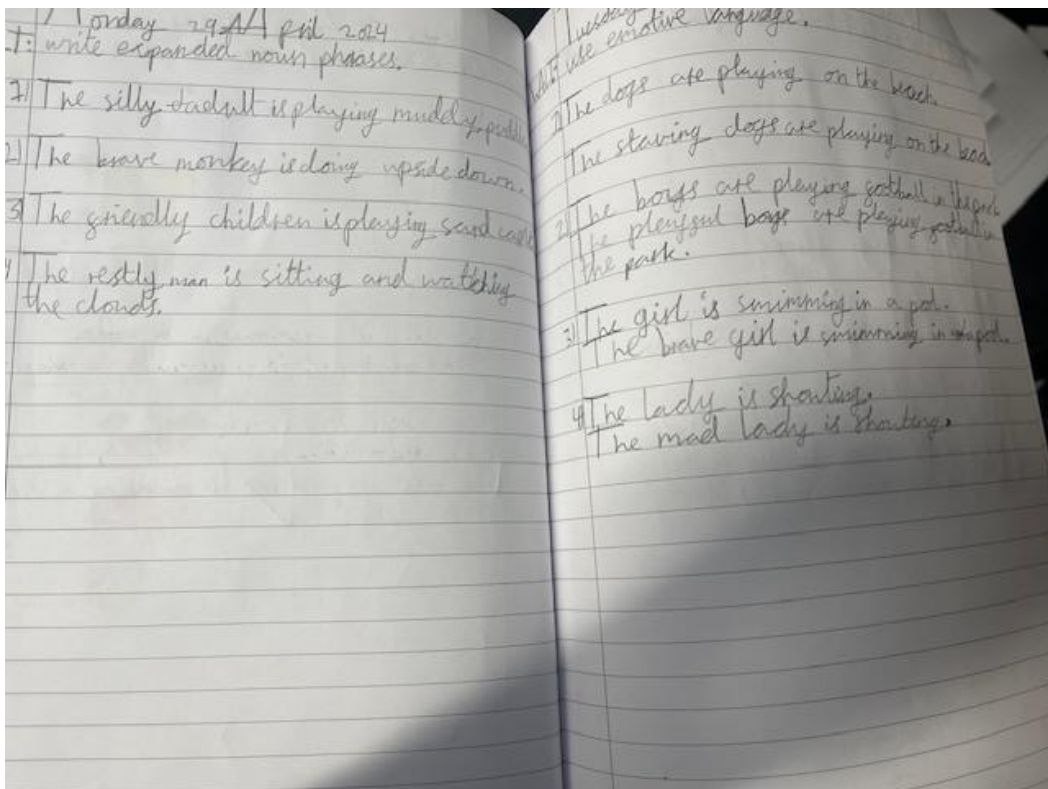 Monday 29 April 2024
LT: write expanded noun phrases.
1) The silly adult is playing muddy puddle
2) The brave monkey is doing upside down.
3) The friendly children is playing sand castle
4) The restly man is sitting and watching
the clouds.
Tuesday
use emotive language.
1) The dogs are playing on the beach.
The staving dogs are playing on the beach
2) The boys are playing football in the park
The playful boys are playing football in
the park.
3) The girl is swimming in a pool.
The brave girl is swimming in a pool.
4) The lady is shouting.
The mad lady is shouting.